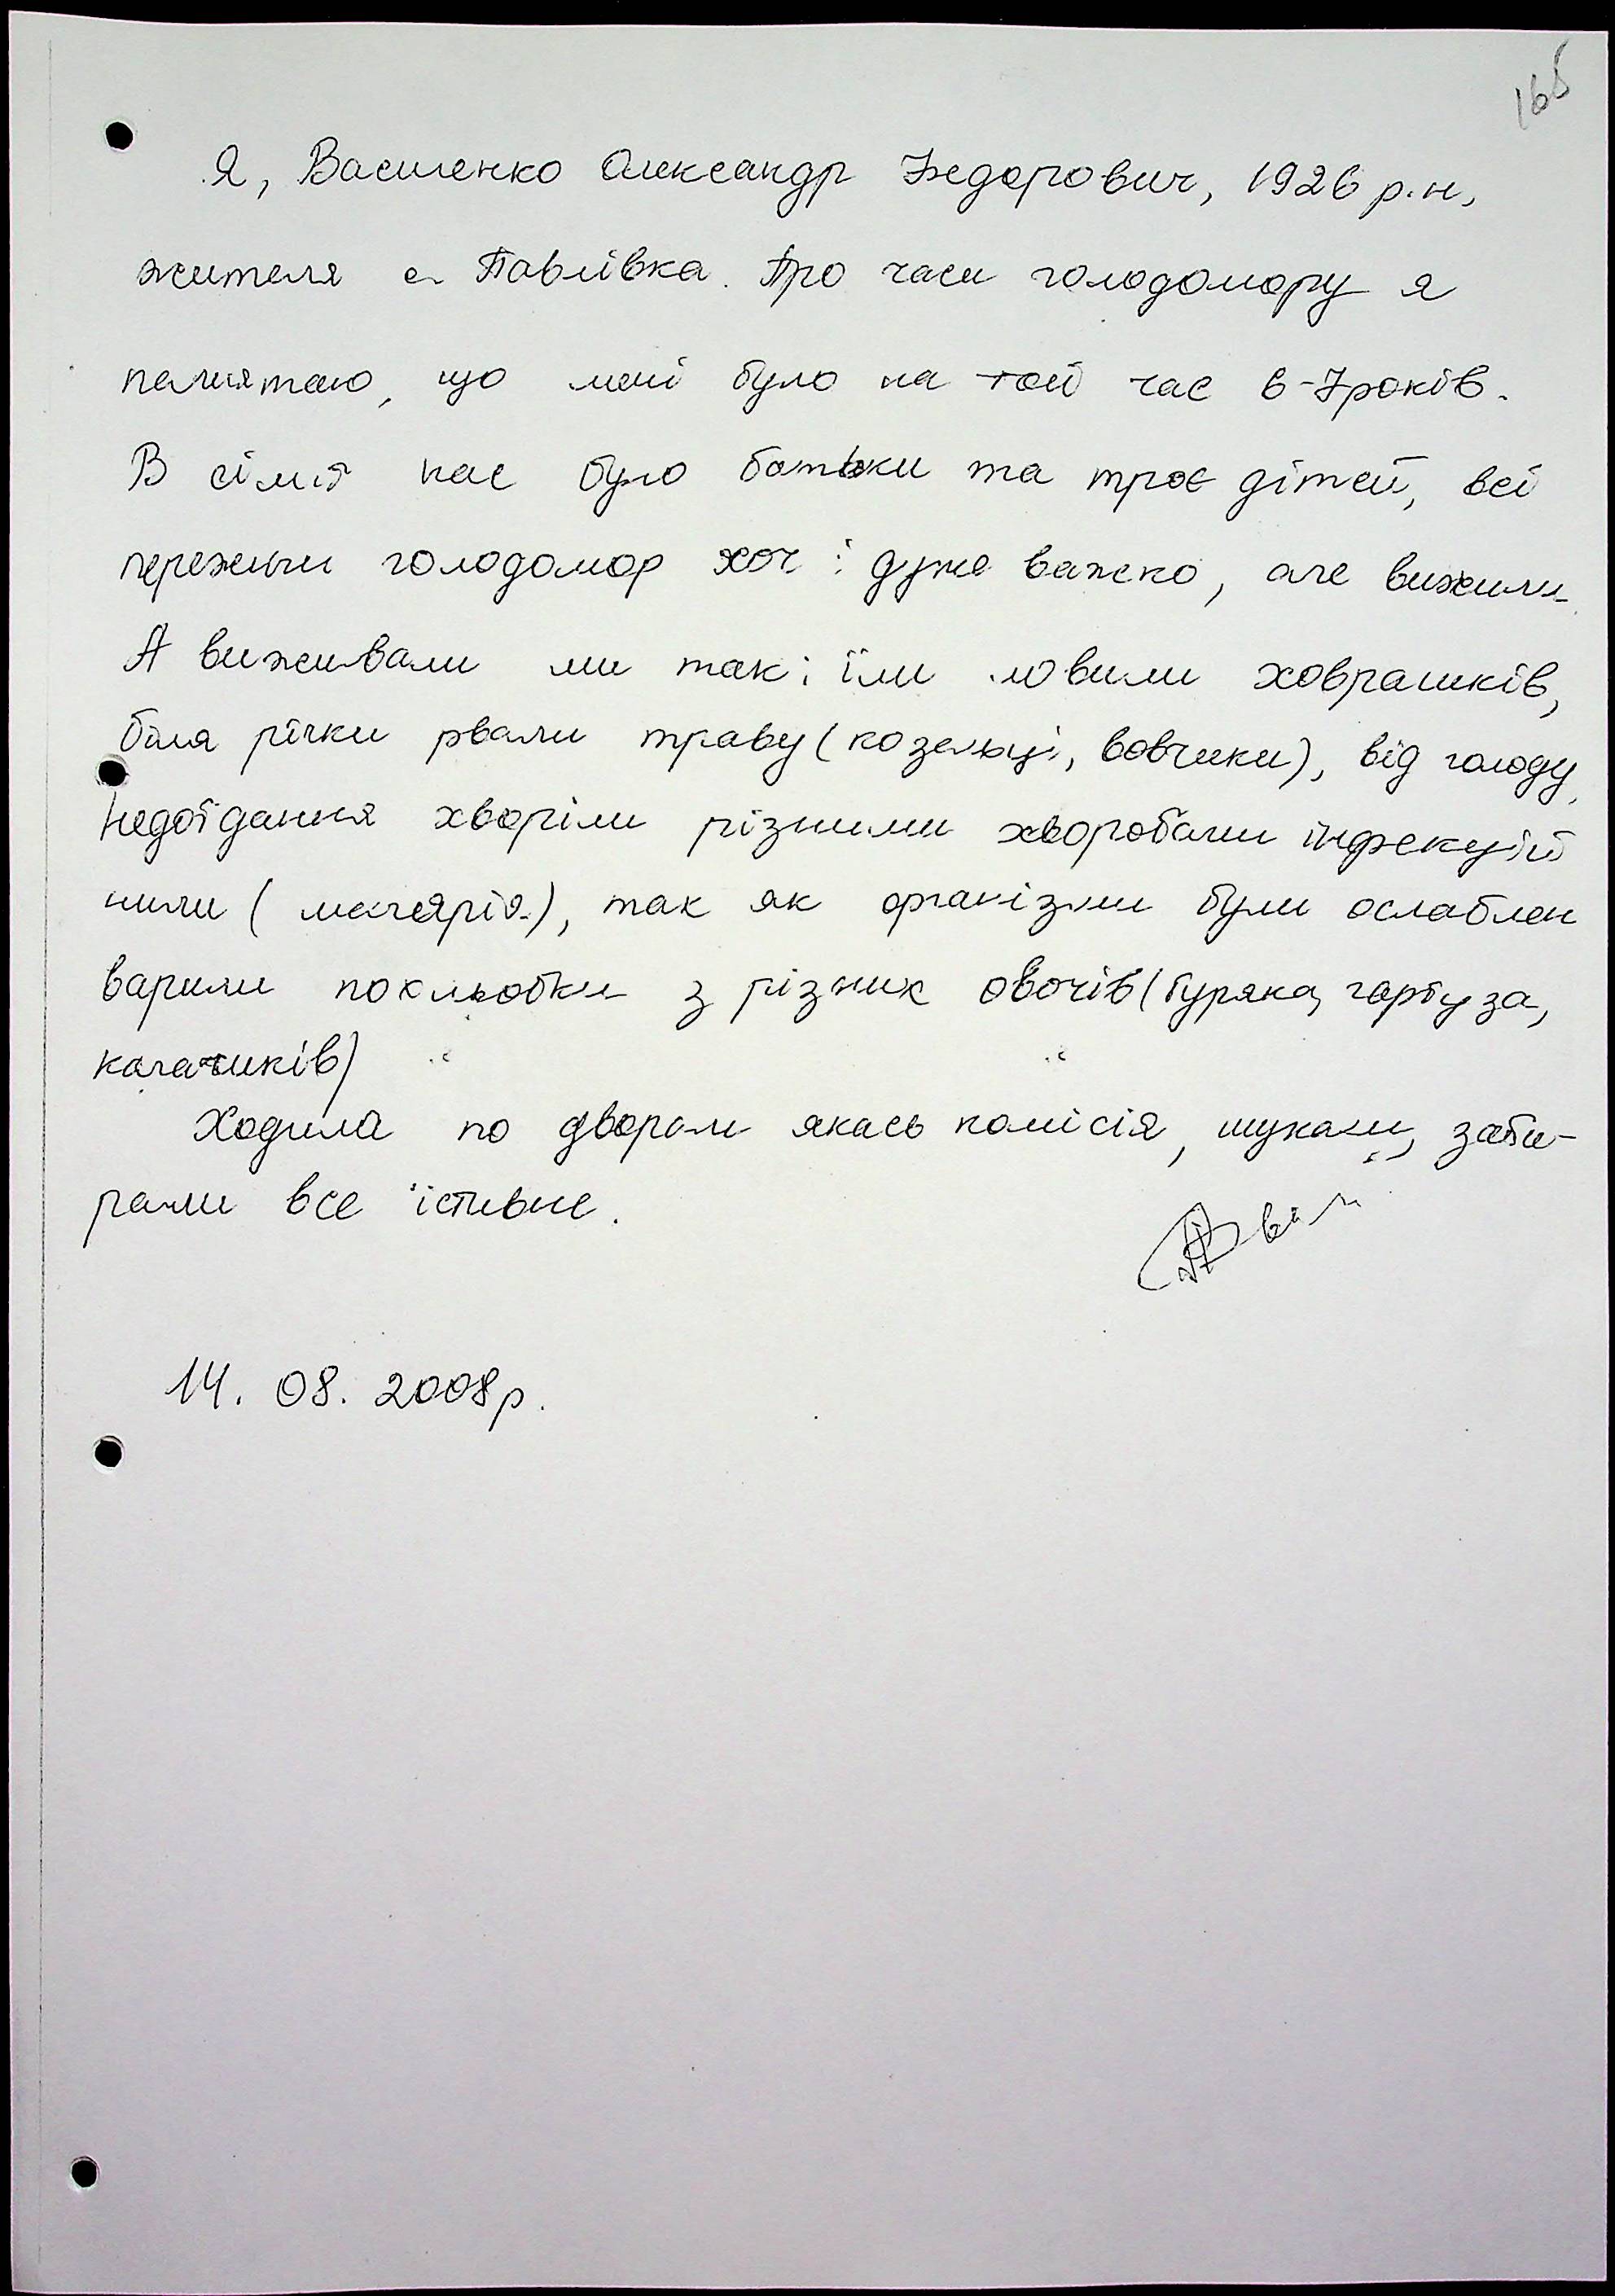 165
Я, Василенко Олександр Федорович, 1926 р.н,
жителя с. Павлівка. Про часи голодомору я
памятаю, що мені було на той час 6-7років.
В сімї нас було батьки та троє дітей, всі
пережили голодомор хоч і дуже важко, але вижили
А виживали ми так: їли ловили ховрашків,
біля річки рвали траву (козельці, вовчики), від голоду,
недоїдання хворіли різними хворобами інфекцій
ними (малярія), так як організми були ослаблен
варили похльобки з різних овочів (буряка, гарбуза,
калачиків)
Ходила по дворам якась комісія, шукали, заби-
рали все їстивне.
14. 08. 2008р.